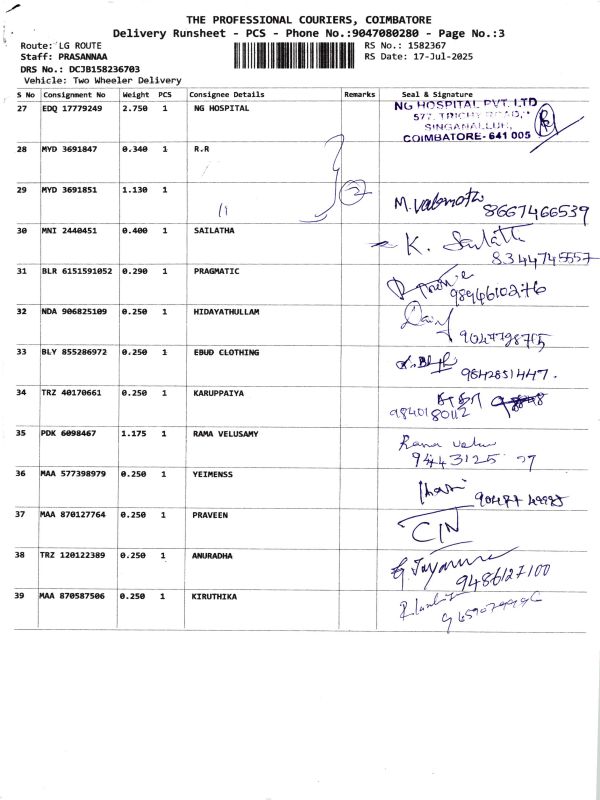 THE PROFESSIONAL COURIERS, COIMBATORE
Delivery Runsheet - PCS - Phone No.:9047080280 - Page No.:3
Route: LG ROUTE RS No.: 1582367
Staff: PRASANNAA RS Date: 17-Jul-2025
DRS No.: DCJB158236703
Vehicle: Two Wheeler Delivery
S No Consignment No Weight PCS Consignee Details Remarks Seal & Signature
27 EDQ 17779249 2.750 1 NG HOSPITAL
NG HOSPITAL PVT. LTD
577, TRICHY ROAD,
SINGANALLUR,
COIMBATORE- 641 005
28 MYD 3691847 0.340 1 R.R
29 MYD 3691851 1.130 1
11 2 M. 8667466539
30 MNI 2440451 0.400 1 SAILATHA K. Sailatha
8344745557
31 BLR 6151591052 0.290 1 PRAGMATIC
9894610276
32 NDA 906825109 0.250 1 HIDAYATHULLAM
9047798715
33 BLY 855286972 0.250 1 EBUD CLOTHING
9842851447.
34 TRZ 40170661 0.250 1 KARUPPAIYA
9840180112
35 PDK 6098467 1.175 1 RAMA VELUSAMY Rama
9443125 77
36 MAA 577398979 0.250 1 YEIMENSS
37 MAA 870127764 0.250 1 PRAVEEN
38 TRZ 120122389 0.250 1 ANURADHA
9486127100
39 MAA 870587506 0.250 1 KIRUTHIKA